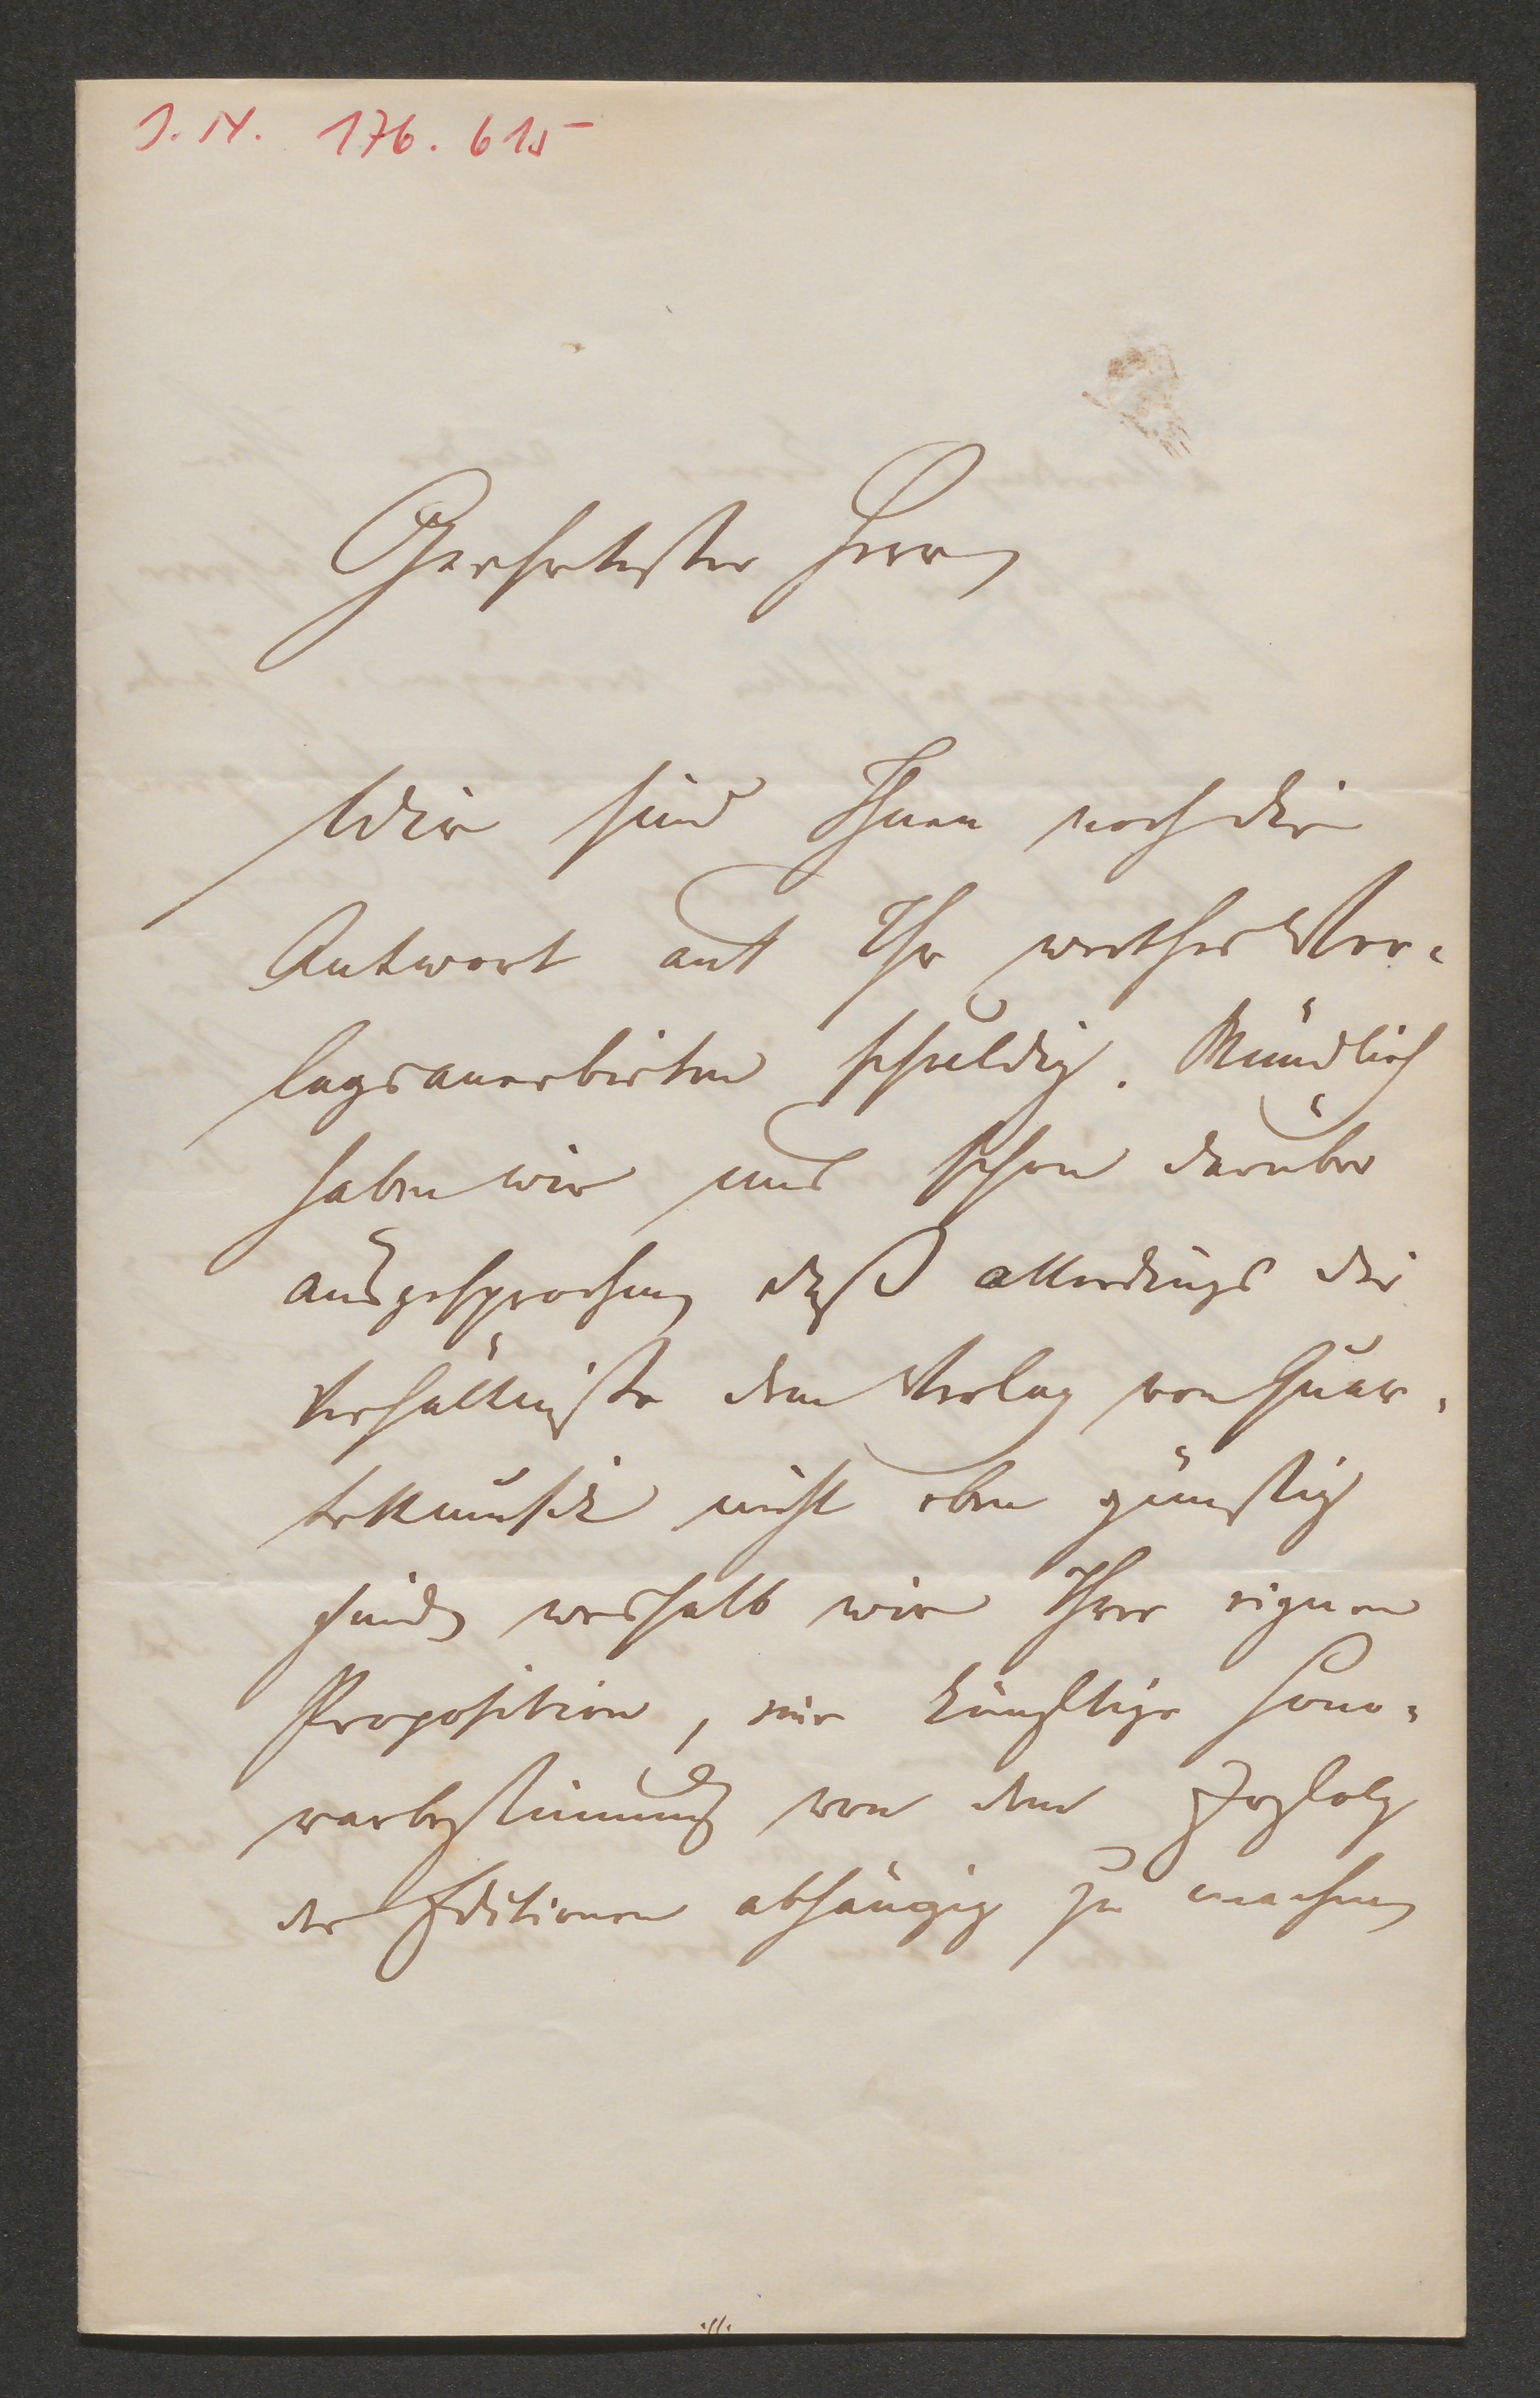 I. N. 176.615
Geehrtester Herr
Wir sind Ihnen noch die
Antwort auf Ihr werthes Ver-
lagsanerbieten schuldig. Mündlich
haben wir uns schon darüber
ausgesprochen daß allerdings die
Verhältnisse dem Verlag von Quar-
tettmusik nicht eben günstig
sind, weshalb wir Ihre eigene
Proposition, eine künftige Hono-
rarbestimmung von dem Erfolg
der Editionen abhängig zu machen
./.